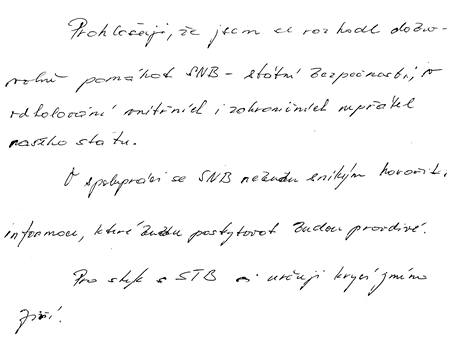 Prohlašuji, že jsem se rozhodl dobro-
volně pomáhat SNB – státní bezpečnosti, v
odhalování vnitřních i zahraničních nepřátel
našeho státu.
O spolupráci se SNB nebudu s nikým hovořit,
informace, které budu poskytovat budou pravdivé.
Pro styk s STB si určuji krycí jméno
Jiří.